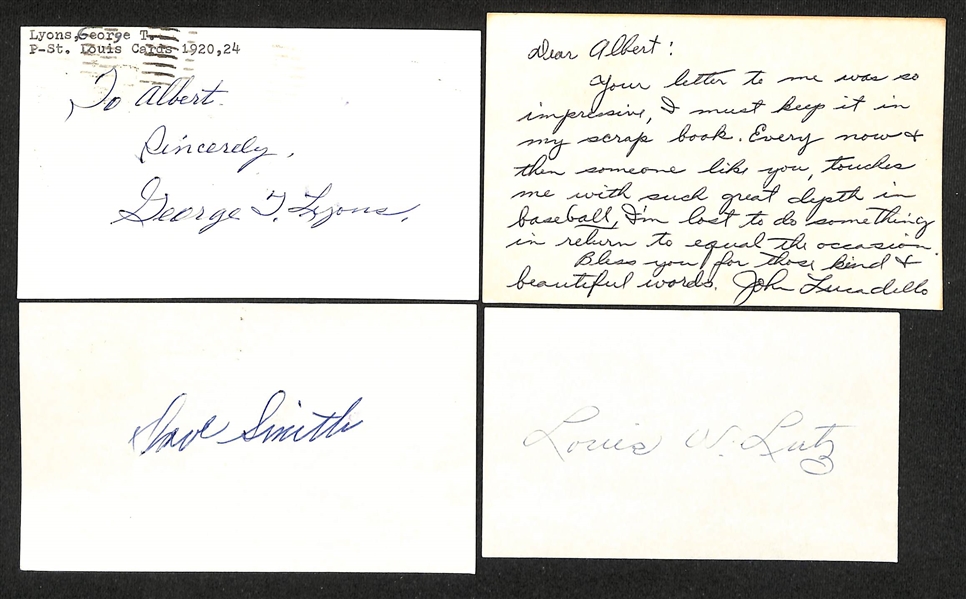 Lyons, George T.
P-St. Louis Cards 1920,24
To Albert.
Sincerely,
George T. Lyons.
Dear Albert:
Your letter to me was so
impressive, I must keep it in
my scrap book. Every now &
then someone like you, touches
me with such great depth in
baseball, I'm lost to do something
in return to equal the occasion.
Bless you for those kind &
beautiful words. John Lucadello
Dave Smith
Louis W. Lutz